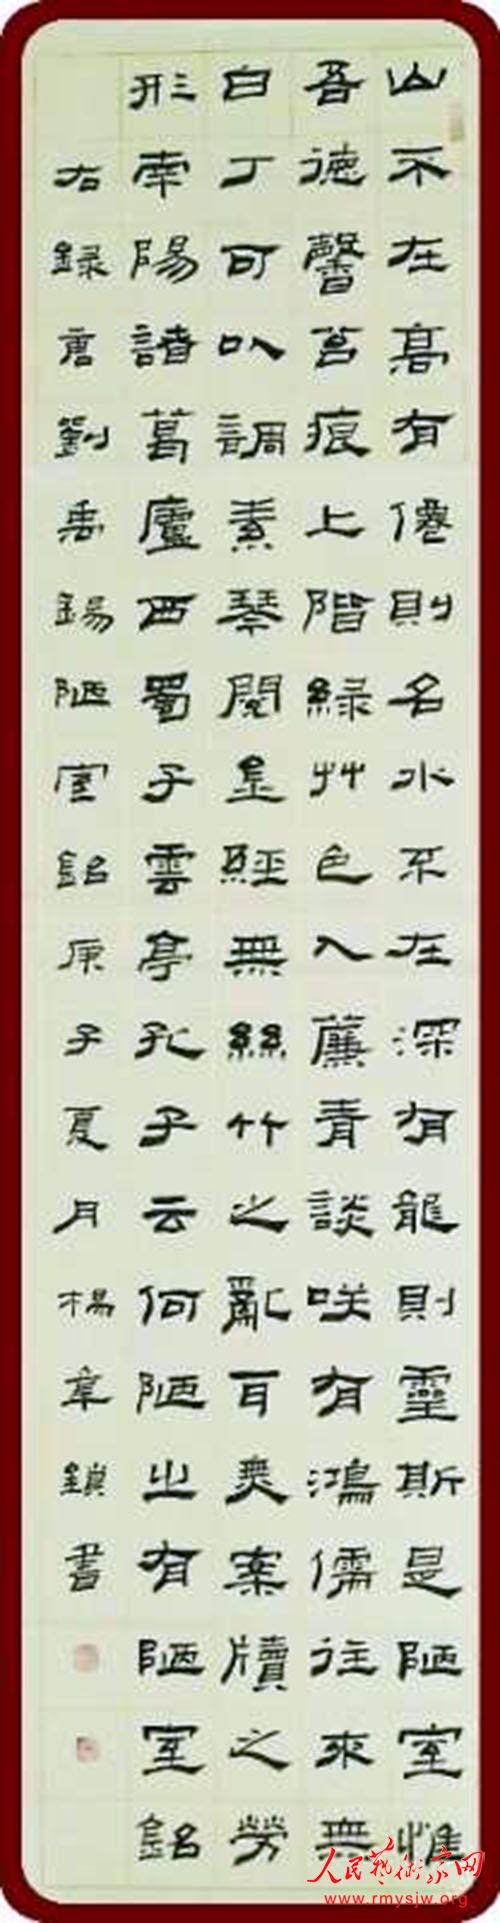 山不在高有僊則名水不在深有龍則靈斯是陋室惟
吾德馨苔痕上階綠艸色入簾青談咲有鴻儒往來無
白丁可㕥調素琴閱金經無絲竹之亂耳無案牘之勞
形南陽諸葛廬西蜀子雲亭孔子云何陋之有陋室銘
右錄唐劉禹錫陋室銘庚子夏月楊鎖書
人民艺术家网
www.rmysjw.org